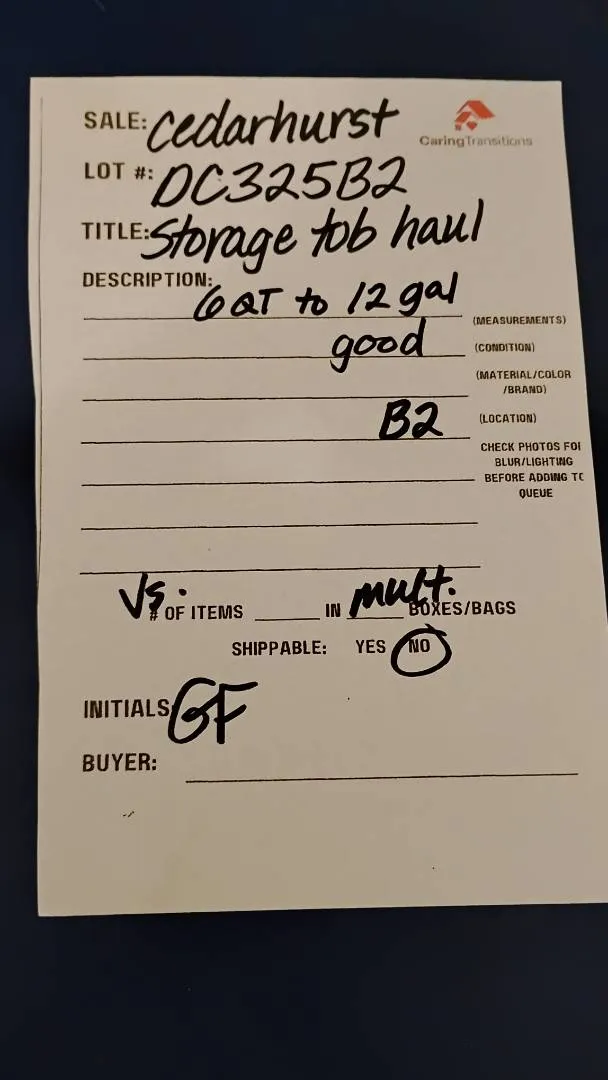 SALE: Cedarhurst
CaringTransitions
LOT #: DC325B2
TITLE: Storage tob haul
DESCRIPTION:
6QT to 12 gal (MEASUREMENTS)
good (CONDITION)
(MATERIAL/COLOR
/BRAND)
B2 (LOCATION)
CHECK PHOTOS FOR
BLUR/LIGHTING
BEFORE ADDING TO
QUEUE
VS. # OF ITEMS ______ IN mult. BOXES/BAGS
SHIPPABLE: YES NO
INITIALS GF
BUYER: